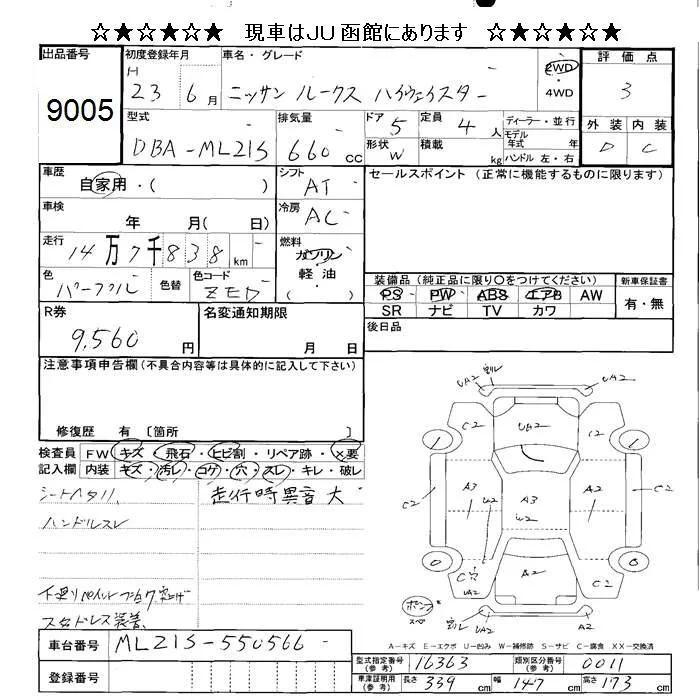 ☆★☆★☆★ 現車はJU函館にあります ☆★☆★☆★
出品番号
9005
初度登録年月
H 23 6月
車名・グレード
ニッサン ルークス ハイウェイスター
2WD
・4WD
評価点
3
外装 内装
D C
型式
DBA-ML21S
排気量
660 cc
ドア 5
定員 4 人
形状 W
積載 kg
ディーラー・並行
モデル年式 年
ハンドル 左・右
車歴
自家用・( )
シフト AT
車検
年 月(日 )
冷房 AC
走行
14万7千838 km
燃料
ガソリン
軽油
( )
色
パープル
色替
色コード
ZED
セールスポイント(正常に機能するものに限ります)
装備品(純正品に限り〇をつけてください)
PS PW ABS エアB AW
SR ナビ TV カワ
新車保証書
有・無
後日品
R券
9,560 円
名変通知期限
月 日
注意事項申告欄(不具合内容等は具体的に記入して下さい)
修復歴 有 〔箇所 〕
検査員記入欄
FW キズ・飛石・ヒビ割・リペア跡・X要
内装 キズ・汚レ・コゲ・穴・スレ・キレ・破レ
シートヘタリ
ハンドルスレ
走行時異音大
スタッドレス装着
UA2 UA2
UA2
C2 C2
C2 C2
A3 A3 A2
U2 U2
C穴
UA2
A2
C2
UA2 A2
スペア
A-キズ E-エクボ U-凹み W-補修跡 S-サビ C-腐食 XX-交換済
車台番号
ML21S-550566
登録番号
型式指定番号(参考) 16363
類別区分番号(参考) 0011
車庫証明用(参考) 長さ 339 cm 幅 147 cm 高さ 173 cm